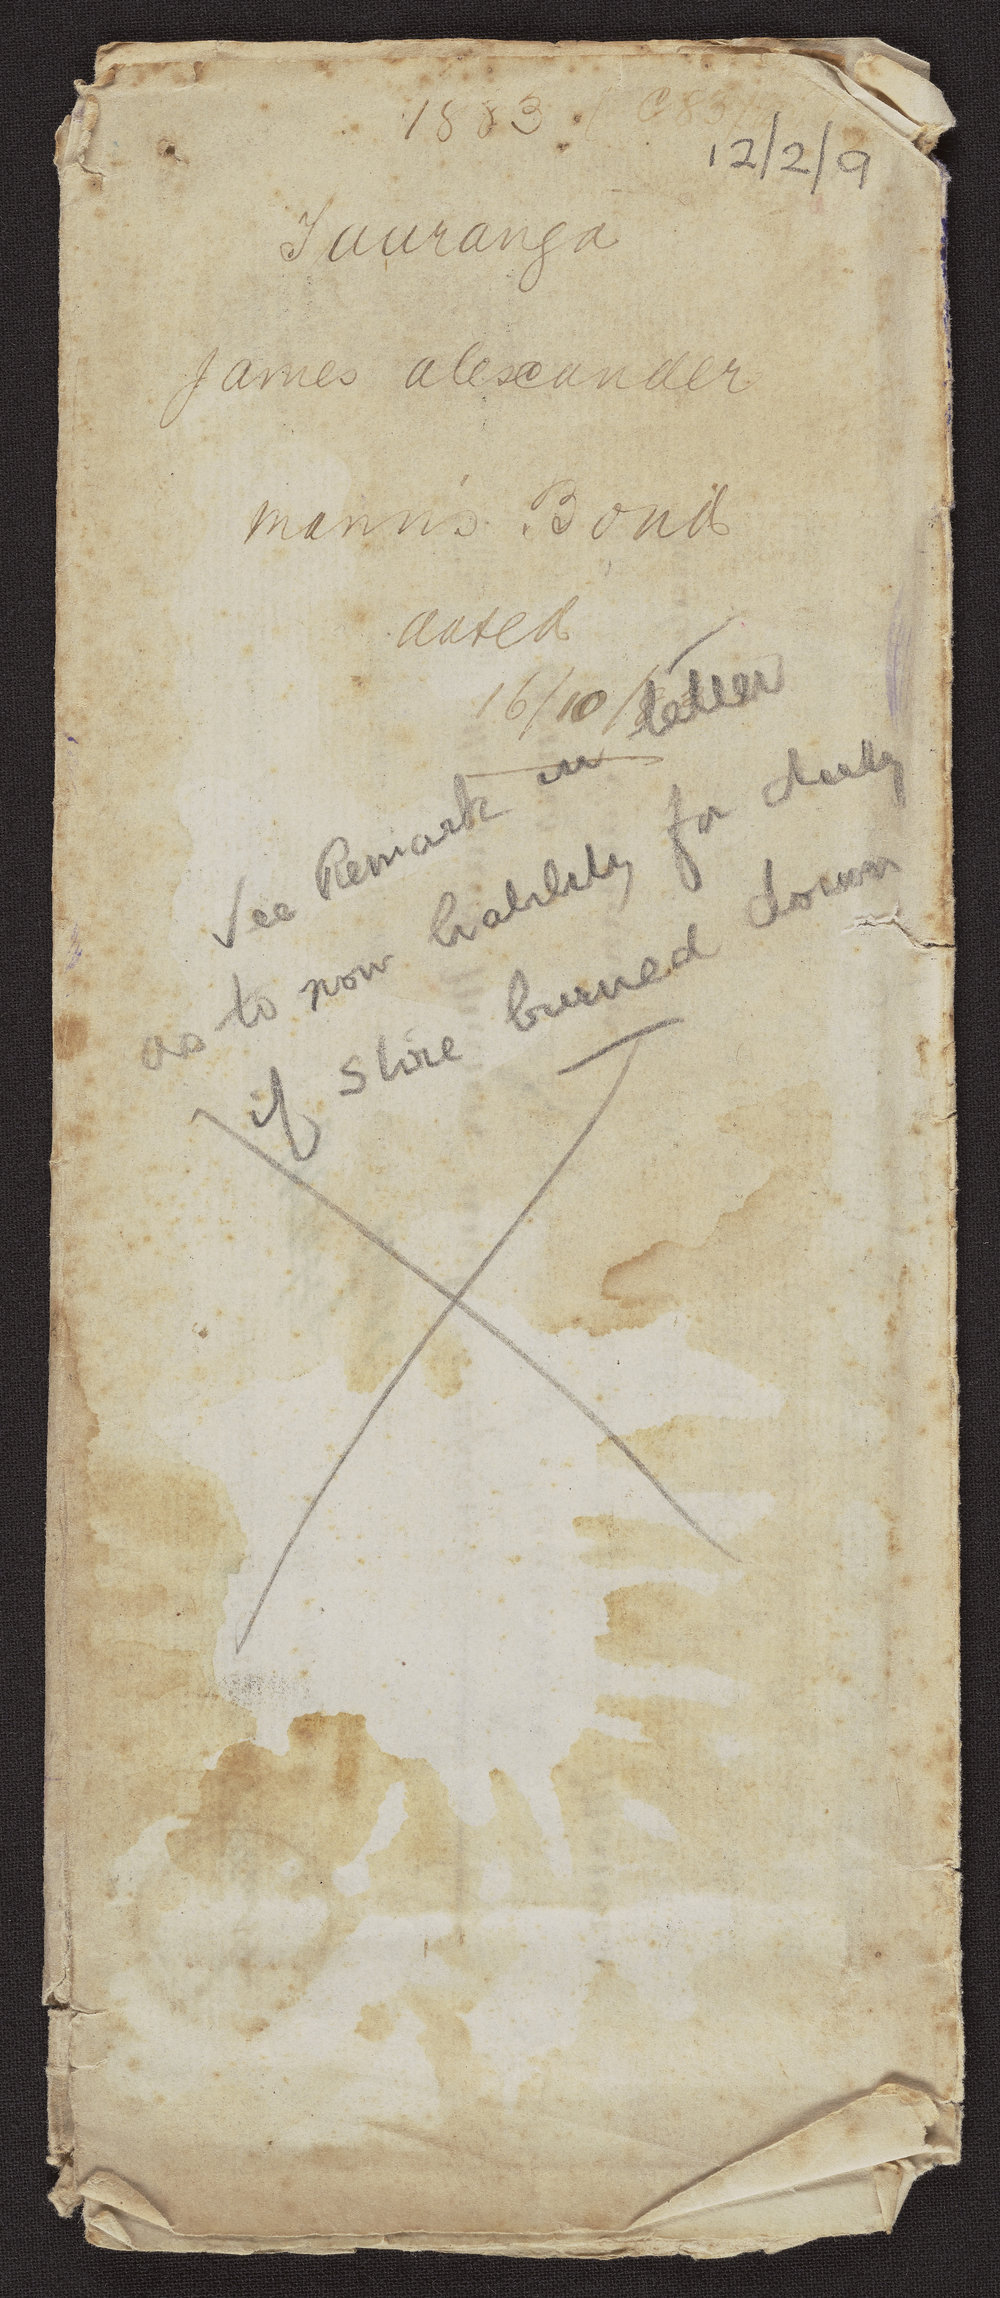 1883
12/2/9
Tauranga
James alexander
mann's Bond
dated
16/10/
See Remark in letter
as to now liability for duty
if store burned down